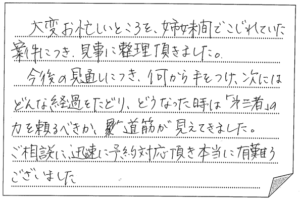 大変お忙しいところを、姉妹間でこじれていた
案件につき、見事に整理頂きました。
今後の見通しにつき、何から手をつけ、次には
どんな経過をたどり、どうなった時は「第三者」の
力を頼るべきか、道筋が見えてきました。
ご相談に、迅速に予約対応頂き本当に有難う
ございました